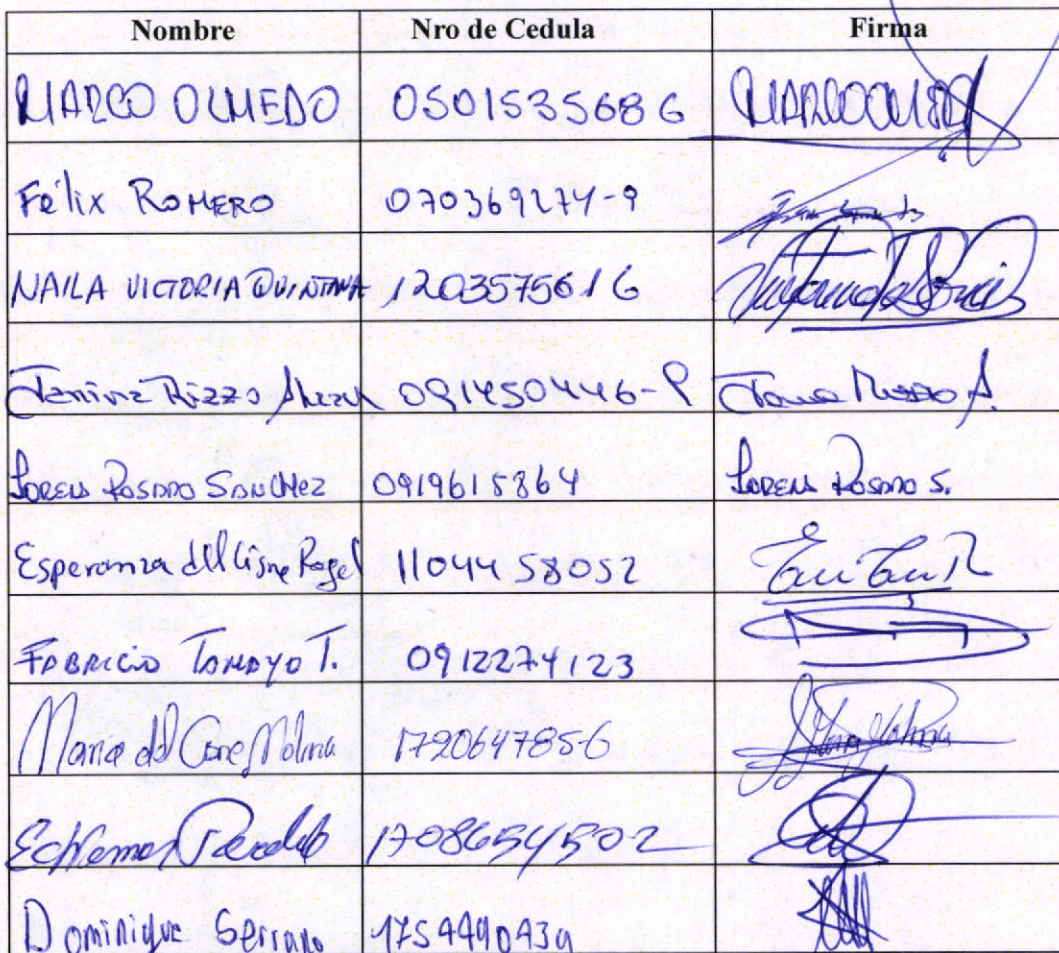 Nombre Nro de Cedula Firma
MARCO OLMEDO 0501535686 MARCO OLMEDO
Félix ROMERO 070369274-9
NAILA VICTORIA QUINTANA 1203575616
Janina Rizzo 091450446-9
LOREN ROSADO SANCHEZ 0919615864 LOREN ROSADO S.
Esperanza del Cisne Rogel 1104458052
FABRICIO TAMAYO T. 0912274123
Maria del Molina 1720647856
1708654502
Dominique Serrano